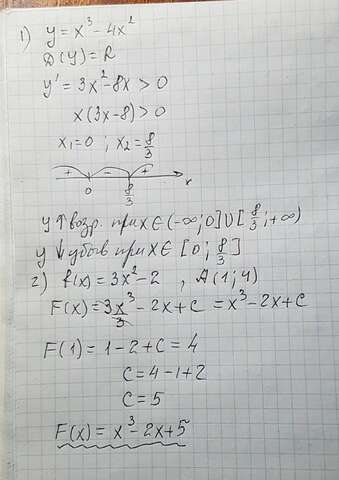 1) y = x³ - 4x²
D(y) = R
y' = 3x² - 8x > 0
x(3x-8) > 0
x₁ = 0 ; x₂ = 8/3
+ - +
0 8/3 x
y ↑ возр. при x ∈ (-∞; 0] U [8/3; +∞)
y ↓ убыв при x ∈ [0; 8/3]
2) f(x) = 3x² - 2 , A(1; 4)
F(x) = 3x³/3 - 2x + C = x³ - 2x + C
F(1) = 1 - 2 + C = 4
C = 4 - 1 + 2
C = 5
F(x) = x³ - 2x + 5